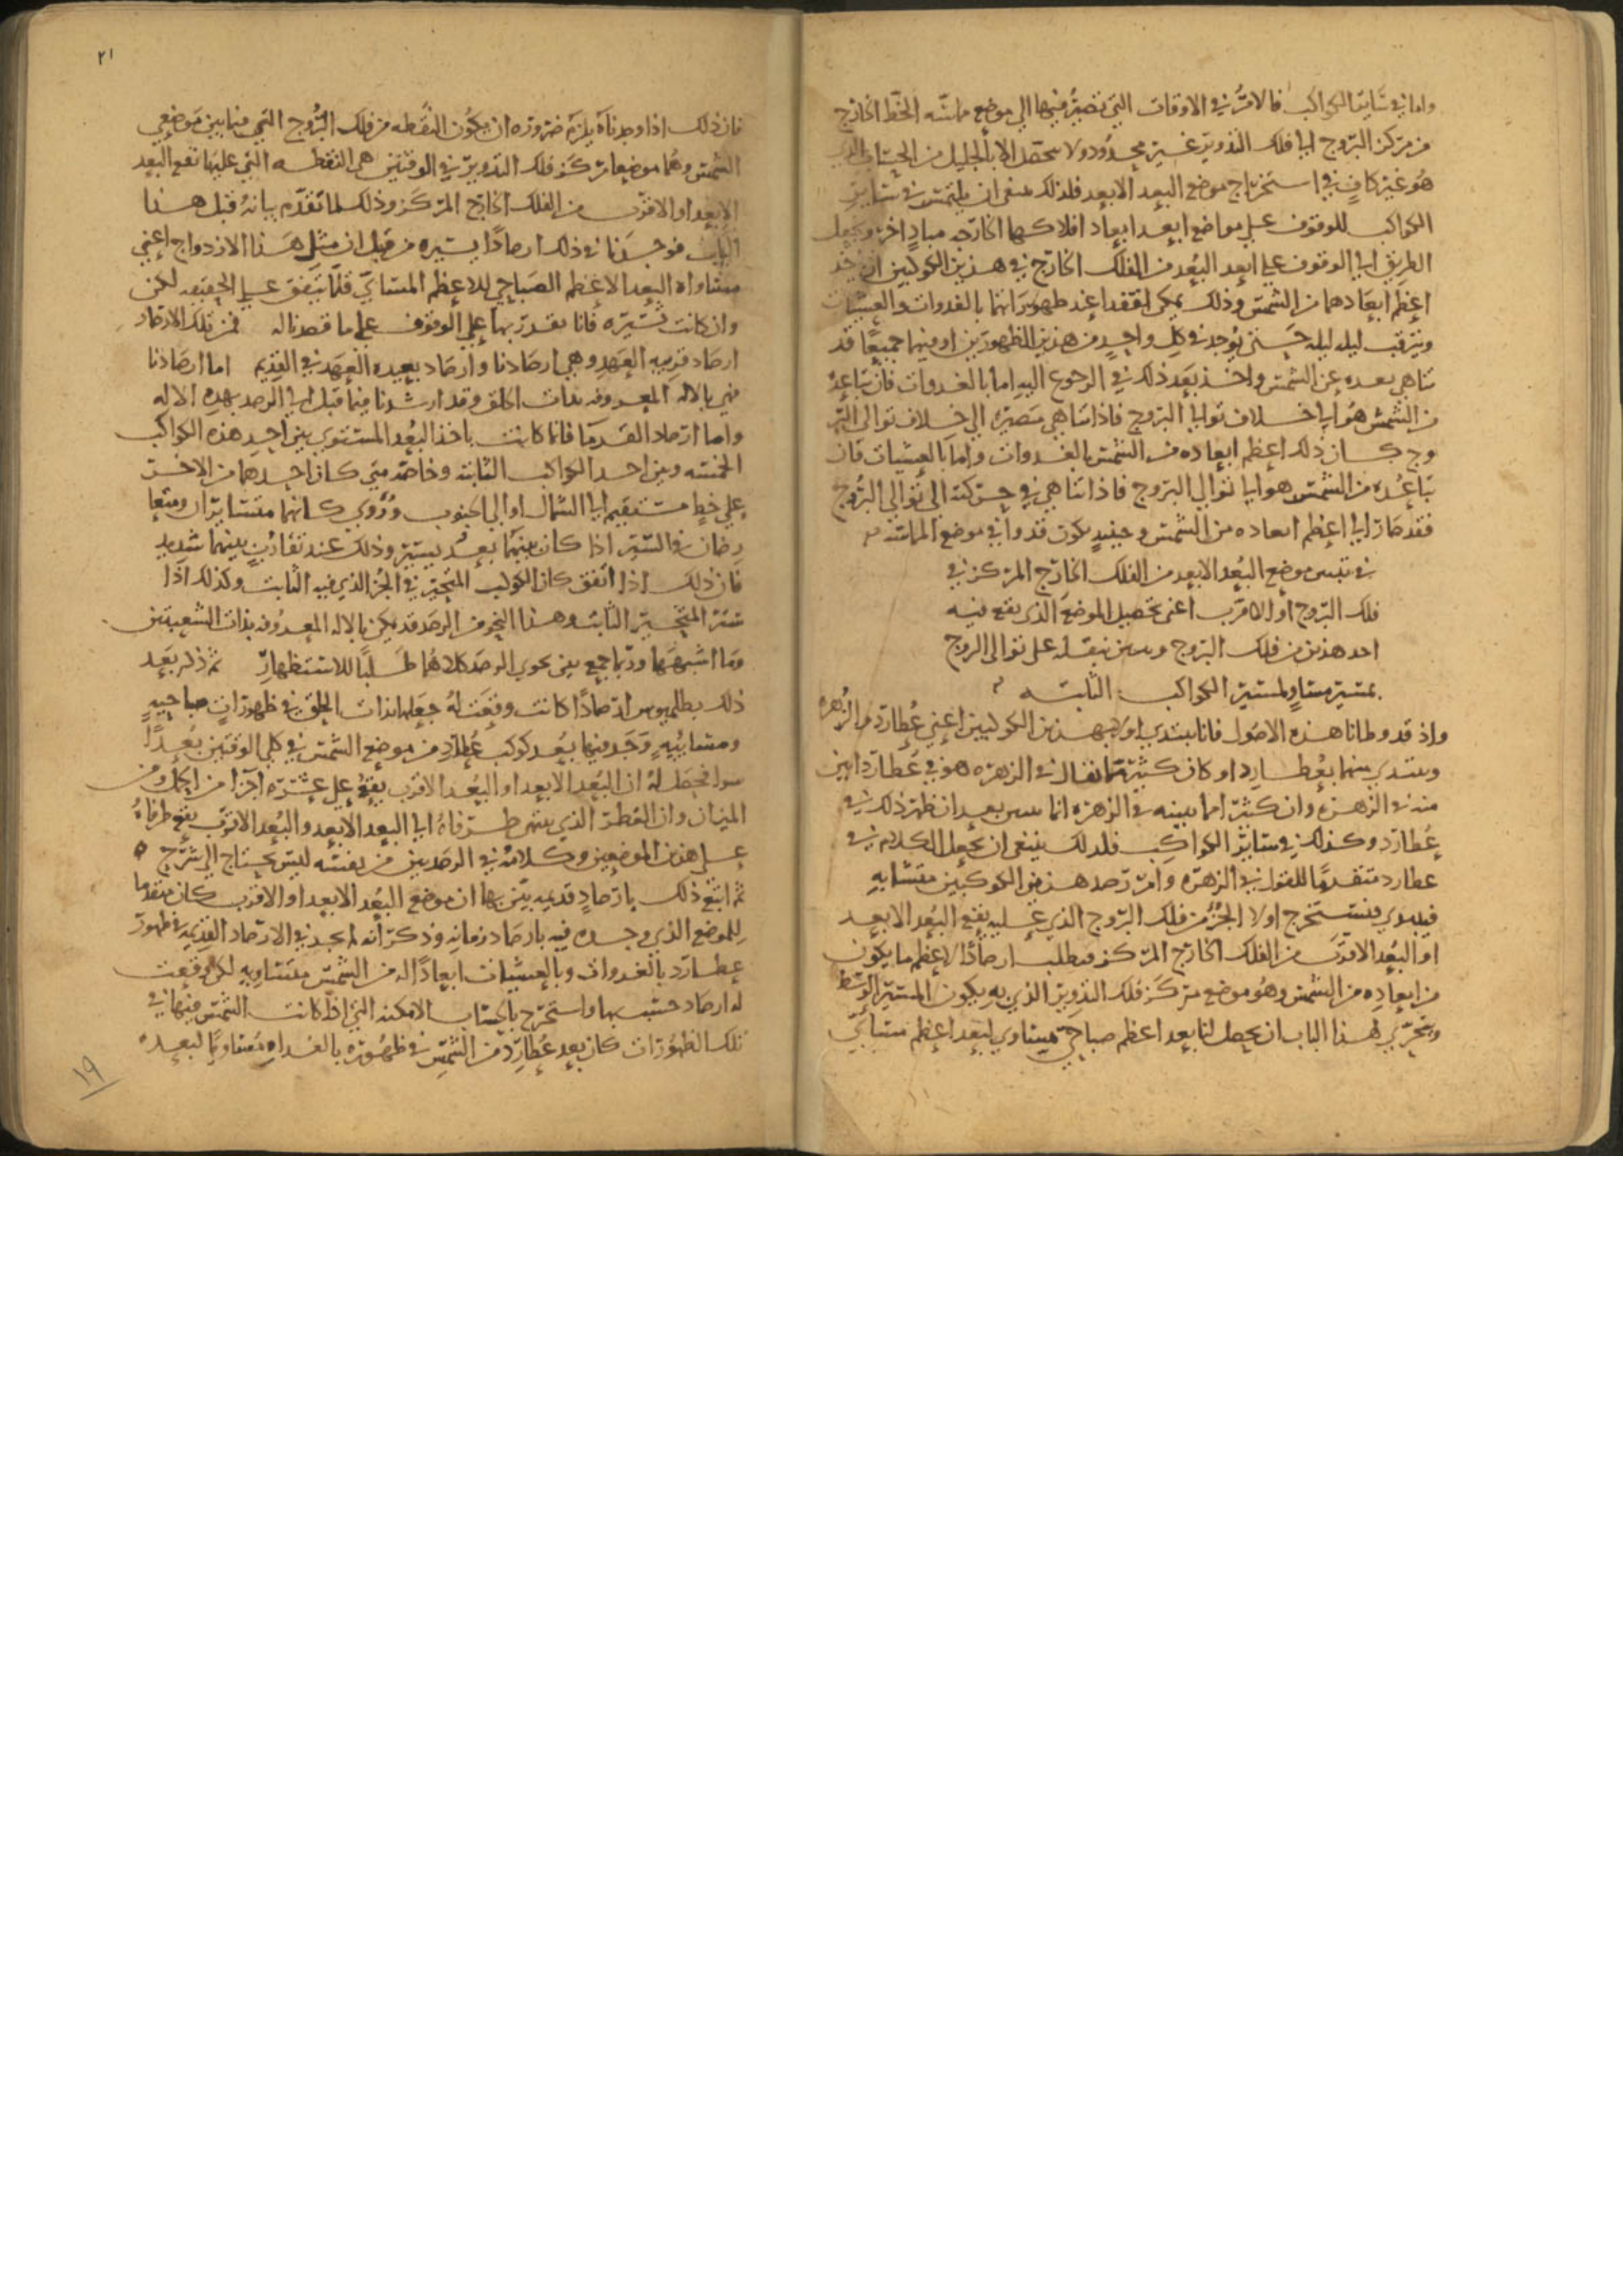 واما في سائر الكواكب فالامر في الاوقات التي تصير فيها الى موضع مماسة الخط الخارج
من مركز البروج الى فلك التدوير غير محدود ولا يتحصل الا بالجليل من الحساب الذي
هو غير كاف في استخراج موضع البعد الابعد فلذلك ينبغي ان يلتمس في سائر
الكواكب للوقوف على مواضع ابعد ابعاد افلاكها الخارجه مباد اخر ويجعل
الطريق الى الوقوف على ابعد البعد من الفلك الخارج في هذين الكوكبين ان يوخذ
اعظم ابعادهما من الشمس وذلك يمكن اذا تفقدا عند ظهوراتهما بالغدوات والعشيات
وترقب ليله ليله حتى يوجد في كل واحد من هذين الظهورين او فيهما جميعا قد
تناهى بعده عن الشمس واخذ بعد ذلك في الرجوع اليه اما بالغدوات فان تباعده
من الشمس هو الى خلاف توالي البروج فاذا تناهى مصيره الى خلاف توالي البر
وج كان ذلك اعظم ابعاده من الشمس بالغدوات واما بالعشيات فان
تباعده من الشمس هو الى توالي البروج فاذا تناهى في حركته الى توالي البروج
فقد صار الى اعظم ابعاده من الشمس وحينيذ يكون قد وافى موضع المماسه
في تبيين موضع البعد الابعد من الفلك الخارج المركز في
فلك البروج او الاقرب اعني تحصيل الموضع الذي يقع فيه
احد هذين من فلك البروج وتبيين تنقله على توالي البروج
بمسير مساو لمسير الكواكب الثابته
واذ قد وطانا هذه الاصول فانا نبتدي اولا بهذين الكوكبين اعني عطارد والزهره
ونبتدي منهما بعطارد اذ كان كثير مما يقال في الزهره هو في عطارد ابين
منه في الزهره وان كثيرا مما نبينه في الزهره انما يتبين بعد ان نظهر ذلك في
عطارد وكذلك في سائر الكواكب فلذلك ينبغي ان نجعل الكلام في
عطارد متقدما للقول في الزهره وامر رصد هذين الكوكبين متشابه
فيبتدي فيستخرج اولا الجزء من فلك البروج الذي عليه يقع البعد الابعد
او البعد الاقرب من الفلك الخارج المركز فيطلب ارصادا لاعظم ما يكون
من ابعاده من الشمس وهو موضع مركز فلك التدوير الذي به يكون المسير الوسط
ويتحرى لهذا الباب ان يحصل لنا بعد اعظم صباحي مساوي لبعد اعظم مسائي
٢١
فان ذلك اذا وجدناه يلزم ضروره ان يكون النقطه من فلك البروج التي فيما بين موضعي
الشمس وهما موضعا مركز فلك التدوير في الوقتين هي النقطه التي عليها تقع البعد
الابعد او الاقرب من الفلك الخارج المركز وذلك لما تقدم بيانه قبل هذا
الباب فوجدنا في ذلك ارصادا يسيره من قبل ان مثل هذا الازدواج اعني
مساواه البعد الاعظم الصباحي للاعظم المسائي قلما يتفق على الحقيقه لكن
وان كانت يسيره فانا نقدر بها على الوقوف على ما قصدنا له فمن تلك الارصاد
ارصاد قريبه العهد وهي ارصادنا وارصاد بعيده العهد في القديم اما ارصادنا
فهي بالاله المعروفه بذات الحلق وقد ارشدنا فيما قبل الى الرصد بهذه الاله
واما ارصاد القدما فانما كانت باخذ البعد المستوي بين احد هذه الكواكب
الخمسه وبين احد الكواكب الثابته وخاصه متى كان احدهما من الاخر
على خط مستقيم الى الشمال او الى الجنوب وروي كانهما متسايران ومتعا
رضان في السير اذا كان بينهما بعد يسير وذلك عند تقارب بينهما شديد
فان ذلك اذا اتفق كان الكوكب المتحير في الجزء الذي فيه الثابت وكذلك اذا
ستر المتحير الثابت وهذا النحو من الرصد قد يمكن بالاله المعروفه بذات الشعبتين
وما اشبهها وربما جمع بين نحوي الرصد كلاهما طلبا للاستظهار ثم ذكر بعد
ذلك بطلميوس ارصادا كانت وقعت له جعلها بذات الحلق في ظهورات صباحيه
ومسائيه وجد فيها بعد كوكب عطارد من موضع الشمس في كلي الوقتين بعدا
سوا فحصل له ان البعد الابعد او البعد الاقرب يقع على عشره اجزا من الحمل ومن
الميزان وان القطر الذي ينتهي طرفاه الى البعد الابعد والبعد الاقرب يقع طرفاه
على هذين الموضعين وكلامه في الرصدين من نفسه ليس يحتاج الى شرح
ثم اتبع ذلك بارصاد قديمه بين بها ان موضع البعد الابعد او الاقرب كان متقدما
للموضع الذي وجده فيه بارصاد زمانه وذكر انه لم يجد في الارصاد القديمه في ظهور
عطارد بالغدوات وبالعشيات ابعادا له من الشمس متساويه لكن وقعت
له ارصاد حسب بها واستخرج بالحساب الامكنه التي اذا كانت الشمس فيها في
تلك الظهورات كان بعد عطارد من الشمس في ظهوره بالغداه متساويا لبعده
١٩